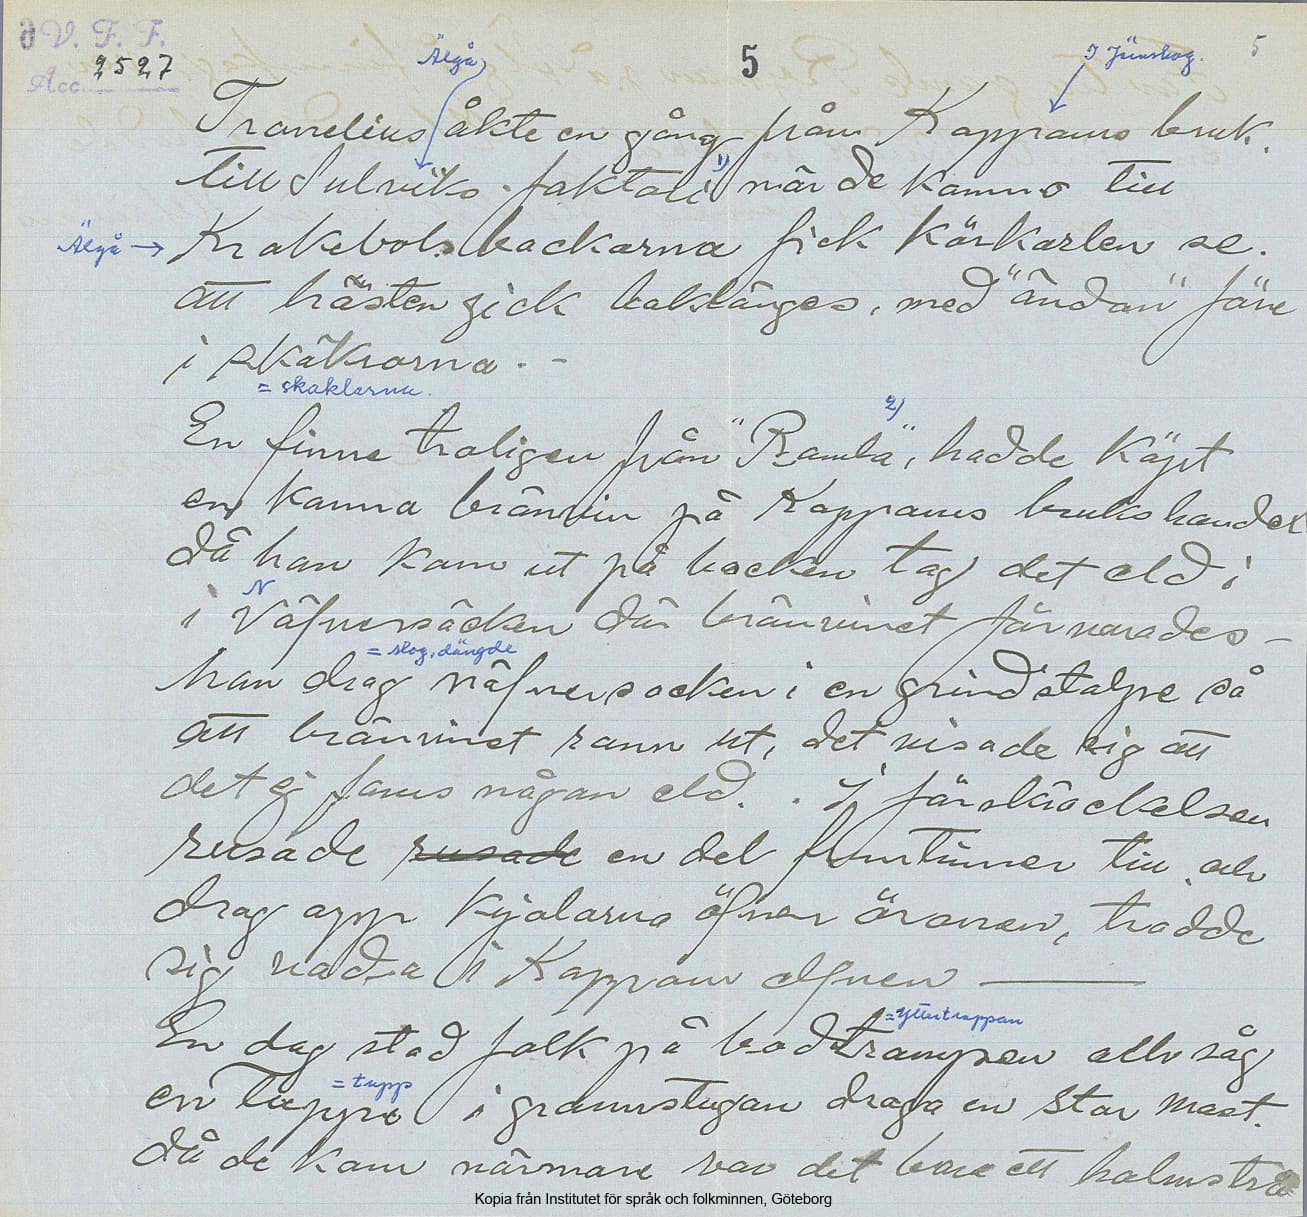 V. F. F.
Acc. 2527
5
5
Älgå
I Jünskog.
Tranelius åkte en gång från Kopparns bruk.
till Sulviks faktori 1) när de kommo till
Älgå → Krokebols backarna fick körkarlen se.
att hästen gick baklänges, med "ändan" före
i skäkrorna. -
= skaklarna.
En finne troligen från "Ramla" 2), hadde köpt
en kanna brännvin på Kopparns brukshandel
då han kom ut på backen tog det eld i
N
iVäfversäcken där brännvinet förvarades -
= slog, dängde
han drog näfversocken i en grindstolpe så
att brännvinet rann ut, det visade sig att
det ej fanns någon eld. . I förskräckelsen
rusade rusade en del fruntimmer till och
drog opp kjolarna öfver öronen, trodde
sig vada i Koppom elfven
= yttertrappan
En dag stod folk på bodtrampen och såg
= tupp
en Tuppe i grannstugan draga en stor mast.
då de kom närmare var det bare ett halmstrå
Kopia från Institutet för språk och folkminnen, Göteborg